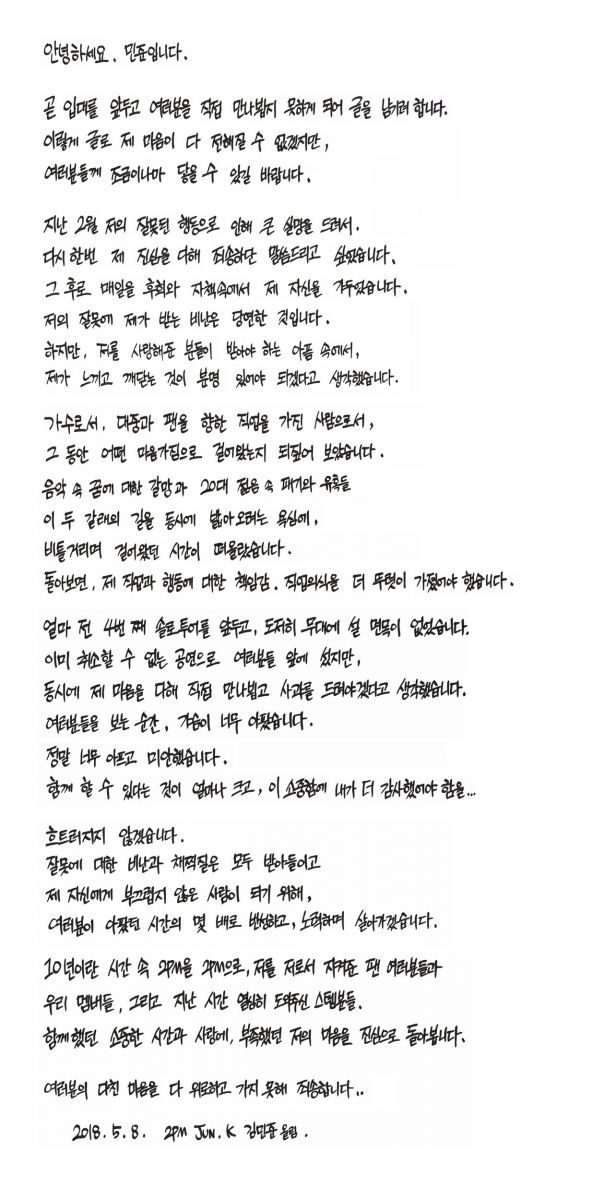 안녕하세요. 민준입니다.
곧 입대를 앞두고 여러분을 직접 만나뵙지 못하게 되어 글을 남기려 합니다.
이렇게 글로 제 마음이 다 전해질 수 없겠지만,
여러분들께 조금이나마 닿을 수 있길 바랍니다.
지난 2월 저의 잘못된 행동으로 인해 큰 실망을 드려서.
다시 한번 제 진심을 다해 죄송하단 말씀드리고 싶었습니다.
그 후로 매일을 후회와 자책속에서 제 자신을 가두었습니다.
저의 잘못에 제가 받는 비난은 당연한 것입니다.
하지만, 저를 사랑해준 분들이 받아야 하는 아픔 속에서,
제가 느끼고 깨닫는 것이 분명 있어야 되겠다고 생각했습니다.
가수로서, 대중과 팬을 향한 직업을 가진 사람으로서,
그 동안 어떤 마음가짐으로 걸어왔는지 되짚어 보았습니다.
음악 속 꿈에 대한 갈망과 20대 젊음 속 패기와 유혹들
이 두 갈래의 길을 동시에 밟아오려는 욕심에,
비틀거리며 걸어왔던 시간이 떠올랐습니다.
돌아보면, 제 직업과 행동에 대한 책임감. 직업의식을 더 뚜렷이 가졌어야 했습니다.
얼마 전 4번 째 솔로투어를 앞두고, 도저히 무대에 설 면목이 없었습니다.
이미 취소할 수 없는 공연으로 여러분들 앞에 섰지만,
동시에 제 마음을 다해 직접 만나뵙고 사과를 드려야겠다고 생각했습니다.
여러분들을 보는 순간, 가슴이 너무 아팠습니다.
정말 너무 아프고 미안했습니다.
함께 할 수 있다는 것이 얼마나 크고, 이 소중함에 내가 더 감사했어야 함을...
흐트러지지 않겠습니다.
잘못에 대한 비난과 채찍질은 모두 받아들이고
제 자신에게 부끄럽지 않은 사람이 되기 위해,
여러분이 아팠던 시간의 몇 배로 반성하고, 노력하며 살아가겠습니다.
10년이란 시간 속 2PM을 2PM으로, 저를 저로서 지켜준 팬 여러분들과
우리 멤버들, 그리고 지난 시간 열심히 도와주신 스텝분들.
함께했던 소중한 시간과 사랑에, 부족했던 저의 마음을 진심으로 돌아봅니다.
여러분의 다친 마음을 다 위로하고 가지 못해 죄송합니다..
2018. 5. 8. 2PM JUN. K 김민준 올림.